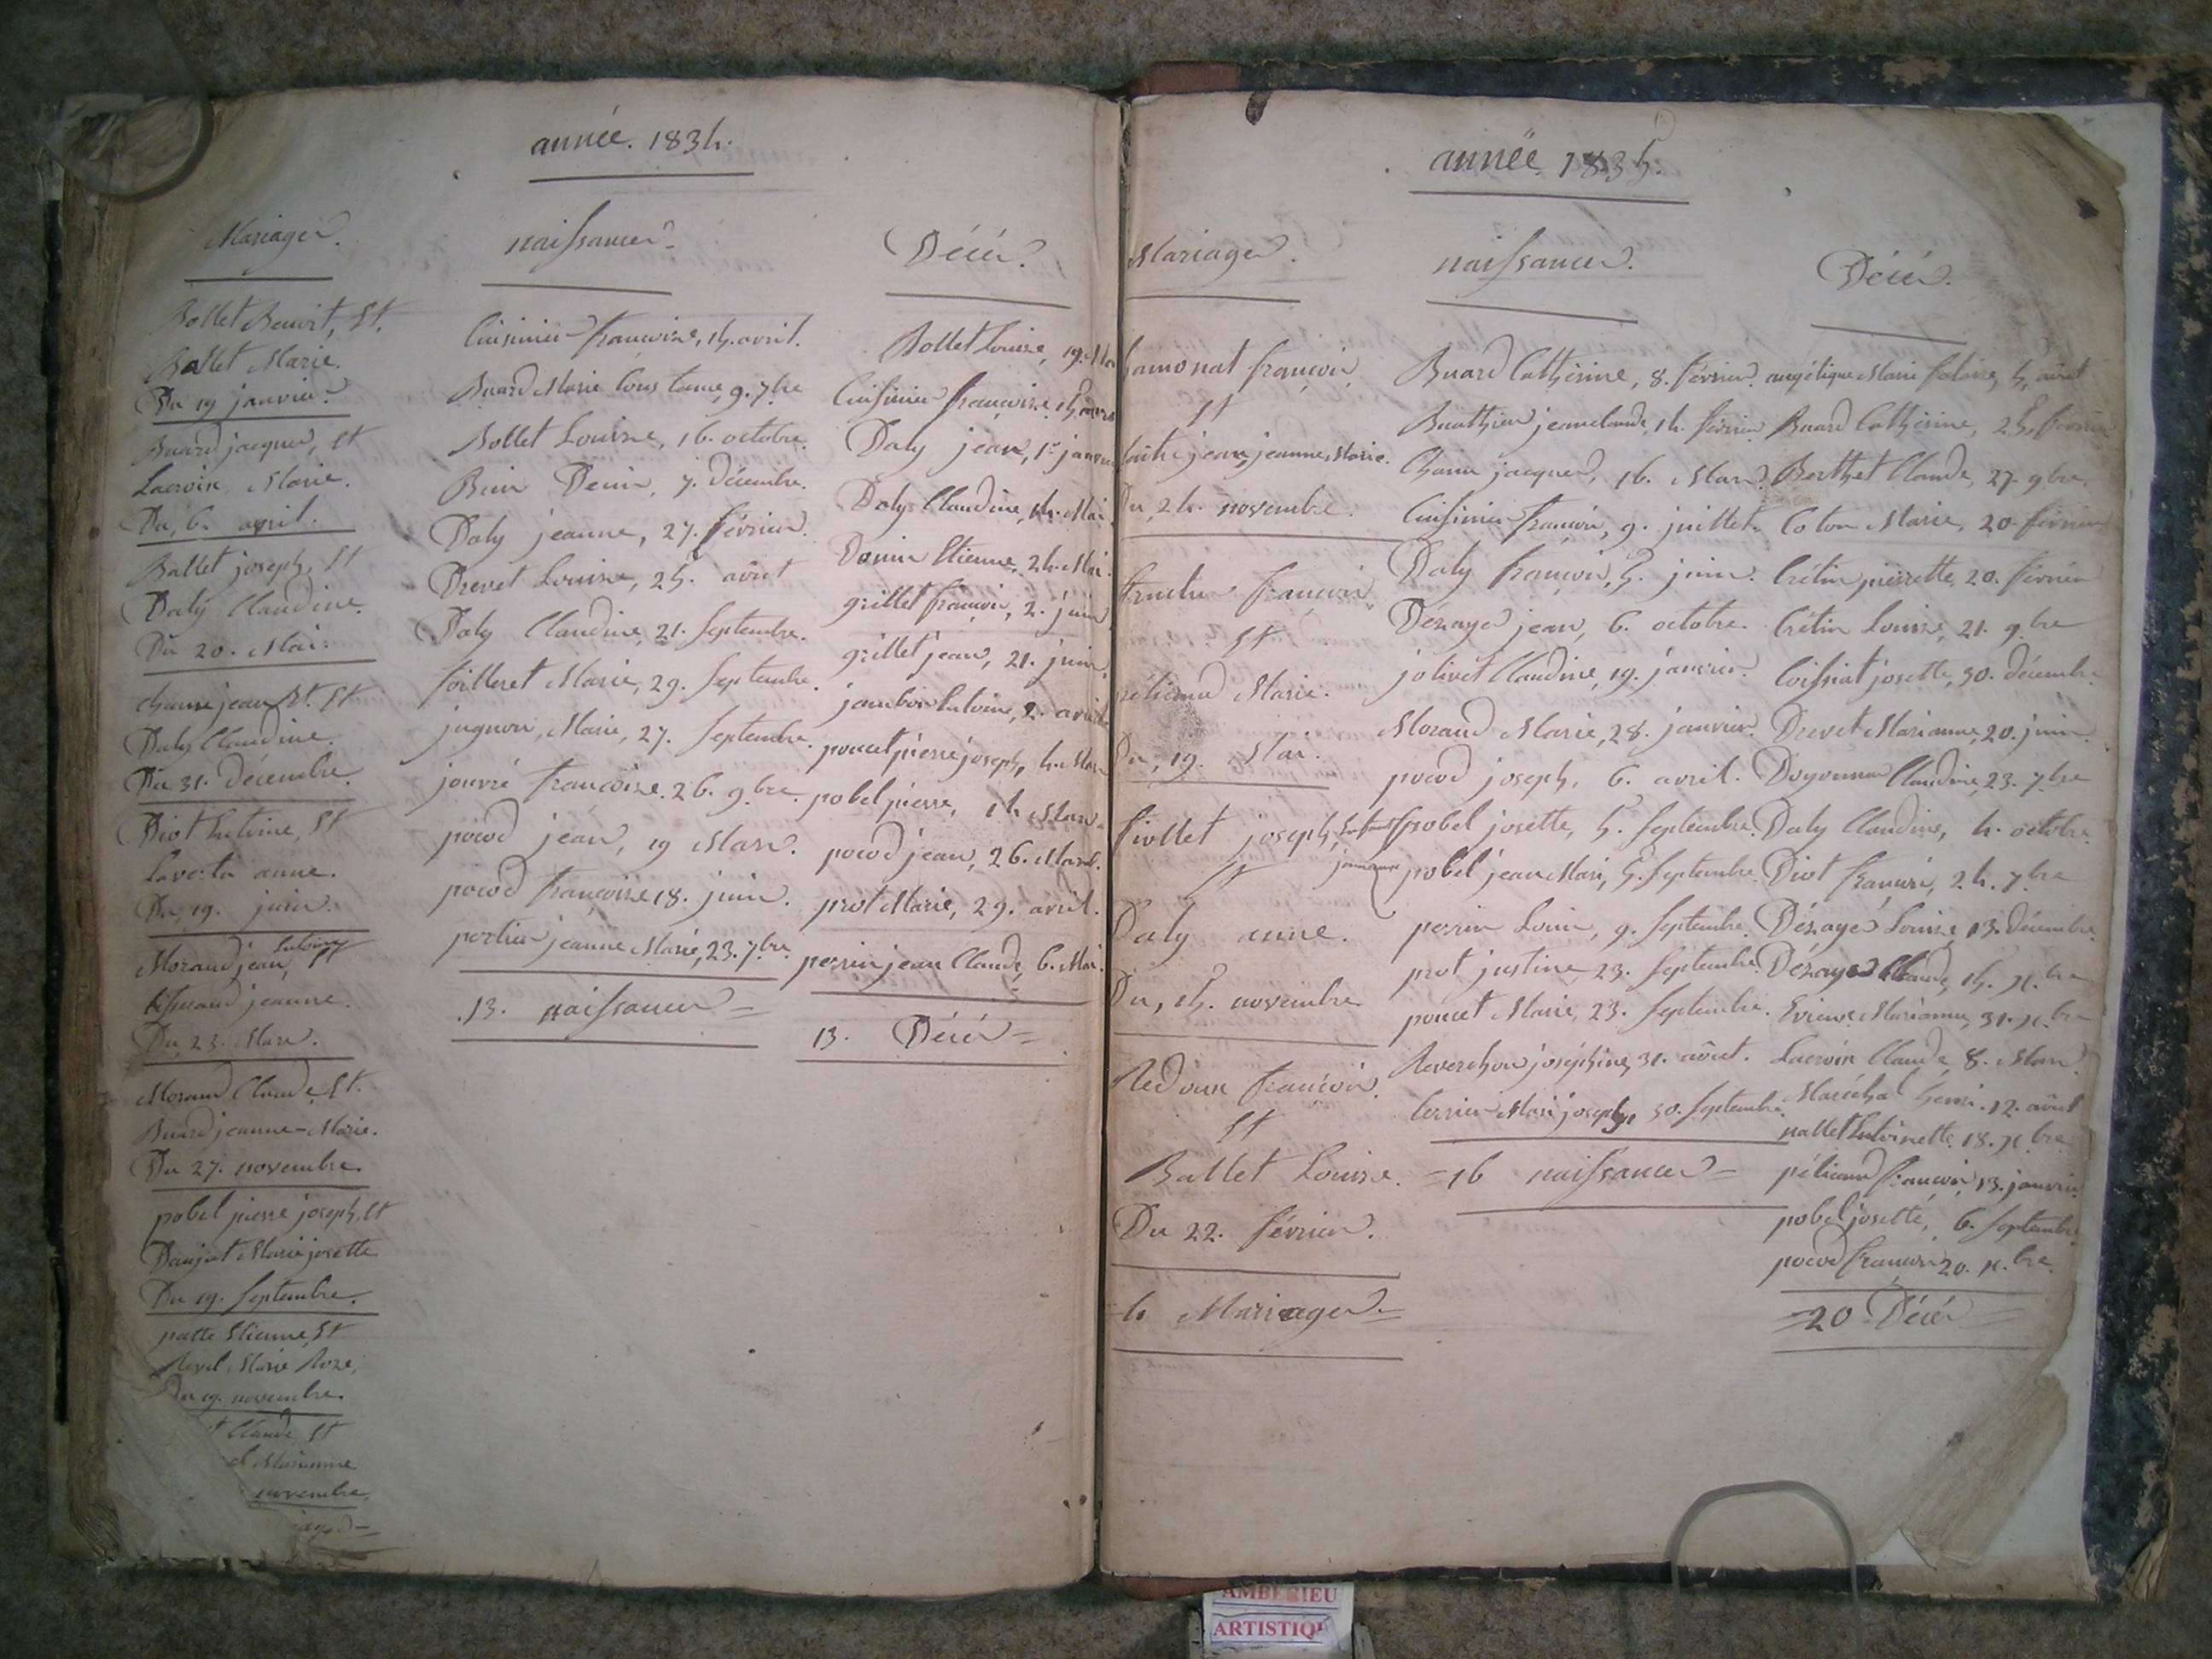 année. 1834.
Mariages.
Bollet Benoit, et
Ballet Marie.
Du 19 janvier.
Buard jacques, et
Lacroix Marie.
Du, 6. avril.
Ballet joseph, et
Daty Claudine.
Du 20. Mai.
Chanu jean Bt. et
Daty Claudine.
Du 31. Décembre.
Diot Antoine, et
anne.
Du, 19. juin.
Morand jean, Antoine et
jeanne.
Du 23. Mars.
Morand Claude, et
Buard jeanne-Marie.
Du 27. novembre.
pobel pierre joseph, et
Danjat Marie josette
Du 19. Septembre.
patte Etienne, et
Revel Marie Roze,
Du 19. novembre.
Claude, et
Marianne
novembre.
naissances
Cuisinier françoise, 15. avril.
Buard Marie Constance, 9. 7.bre
Bollet Louise, 16. octobre.
Denis, 7. Décembre.
Daty jeanne, 27. février.
Drevet Louise, 25. août
Daty Claudine, 21. Septembre.
foilleret Marie, 29. Septembre.
jugnon, Marie, 27. Septembre.
jouvre françoise. 26. 9.bre.
pocod jean, 19 Mars.
pocod françoise 18. juin.
portier jeanne Marie, 23. 7.bre.
13. naissances =
Décès.
Bollet Louise, 19.
Cuisinier françoise, 15.
Daty jean, 1er
Daty Claudine, 14. Mai.
Donin Etienne, 24. Mai.
grillet françois, 2. juin
grillet jean, 21. juin
jambon Antoine, 2. avril
poncet pierre joseph, 4. Mars
pobel pierre, 14 Mars.
pocod jean, 26. Mars.
prost Marie, 29. avril.
perrin jean Claude, 6. Mai.
13. Décès =
année. 1835.
Mariages.
françois,
et
jeanne, Marie.
Du, 24. novembre.
françois,
et
Marie.
Du, 19. Mai.
fiollet joseph,
et
Daty anne.
Du, 15. novembre
Redoux françois.
et
Ballet Louise.
Du 22. février.
4 Mariages =
naissances.
Buard Cathérine, 8. février.
Buathier jean claude, 14. février
Chanu jacques, 16. Mars.
Cuisinier françois, 9. juillet.
Daty françois, 5. juin.
Dézayes jean, 6. octobre.
jolivet Claudine, 19. janvier.
Morand Marie, 28. janvier.
pocod joseph, 6. avril.
pobel josette, 5. Septembre.
pobel jean Mari, 5. Septembre.
perrin Louis, 9. Septembre.
prot justine 23. Septembre.
poncet Marie, 23. Septembre.
Reverchon joséphine, 31. août.
terrier Mari joseph, 30. Septembre.
=16 naissances=
Décès.
angélique Marie 5, août
Buard Cathérine, 25, février
Berthet Claude, 27. 9bre.
Coton Marie, 20. février
Crétin pierrette, 20. février
Crétin Louise, 21. 9.bre
Coissiat josette, 30. Décembre.
Drevet Marianne, 20. juin.
Doyonnas Claudine, 23. 7.bre
Daty Claudine, 4. octobre.
Diot françois, 24. 7.bre
Dézayes Louise, 13. Décembre.
Dézayes Claude, 15. X.bre
Marianne, 31. X.bre
Lacroix Claude, 8. Mars.
Maréchal henri. 12. août
nallet Antoinette. 18. X.bre
françois, 13. janvier.
pobel josette, 6. Septembre.
pocod françois 20. X.bre.
=20 Décès
AMBERIEU
ARTISTIQ